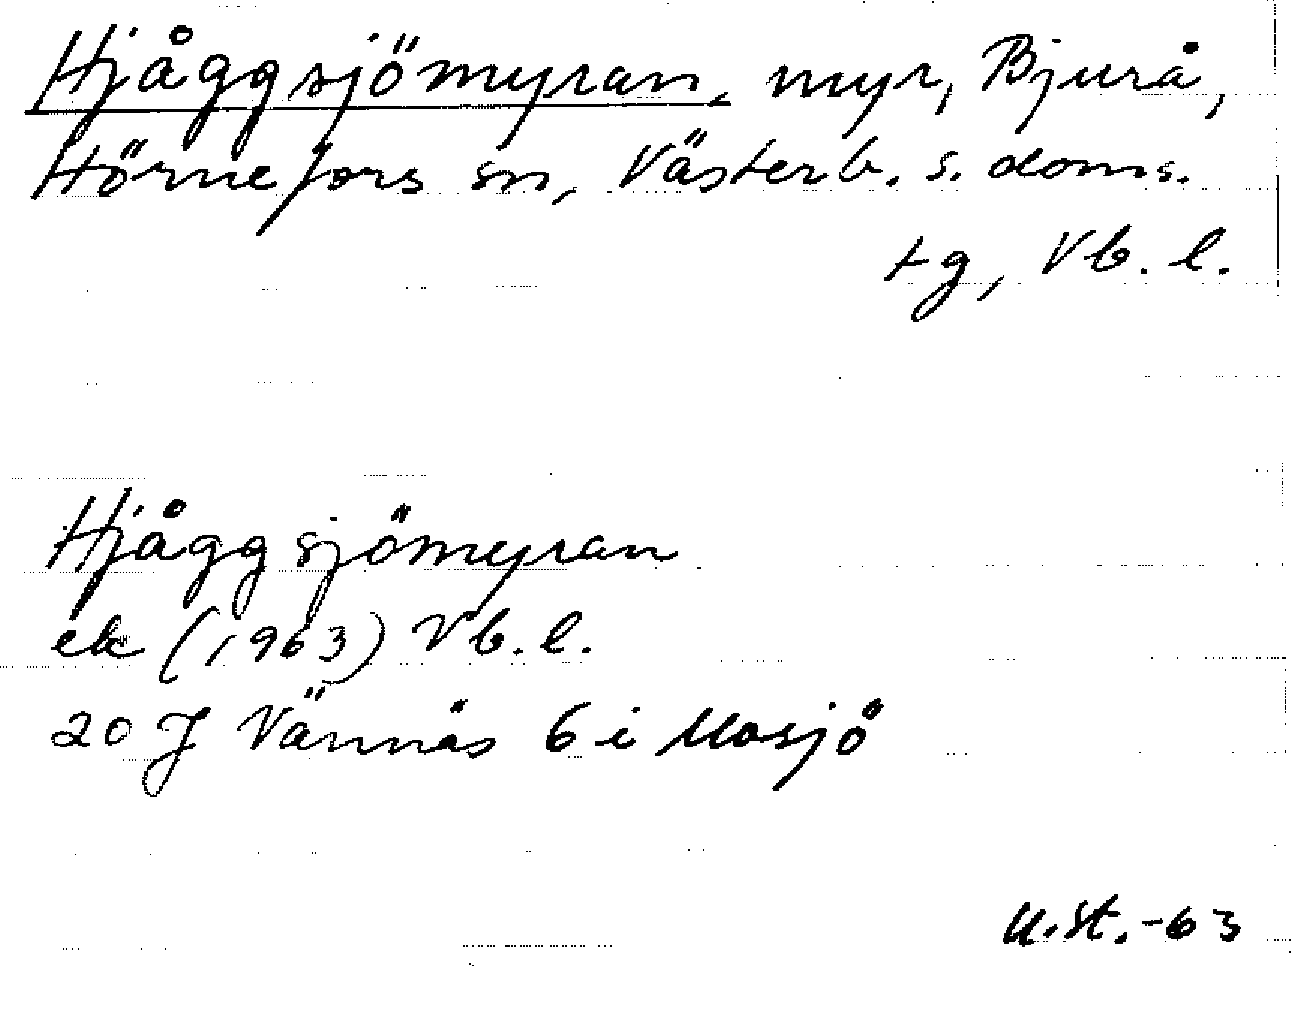 Hjåggsjömyran, myr, Bjurå,
Hörnefors sn, Västerb. s. doms.
tg, Vb. l.
Hjåggsjömyran
ek (1963) Vb. l.
20 J Vännäs 6 i Mosjö
U. St. -63